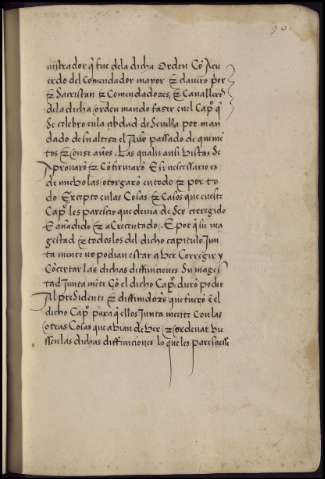 nistrador q̃ fue dela dicha Orden Cõ Acu
erdo del Comendador mayor & clavero por
& Sacristan & Comendadores & Cavalleros
dela dicha orden mando fazer en el Cap.º q̃
se celebro en la cibdad de Sevilla por man
dado de su alteza el Año passado de quinie
tos & onze años. Las quales ansi vistas se
Aprovarõ & Cõfirmarõ E si necessario es
de nuebo las otorgarõ en todo & por to
do Excepto en las Cosas & Casos que en este
Cap.º les parescio que devia de Ser corregido
E añadido & acrecentado. E por q̃ su ma
gestad & todos los del dicho capitulo Jun
ta mente no podian estar a ber Corregir y
Cõcertar las dichas diffiniciones Su mages
tad Junta mẽte Cõ el dicho Cap.º diero poder
Al presidente & diffinidores que fuerõ ẽ el
dicho Cap.º para q̃ ellos Junta mente Con las
otras Cosas que abian de ber & ordenar bie
ssen las dichas diffiniciones lo que les paresciesse